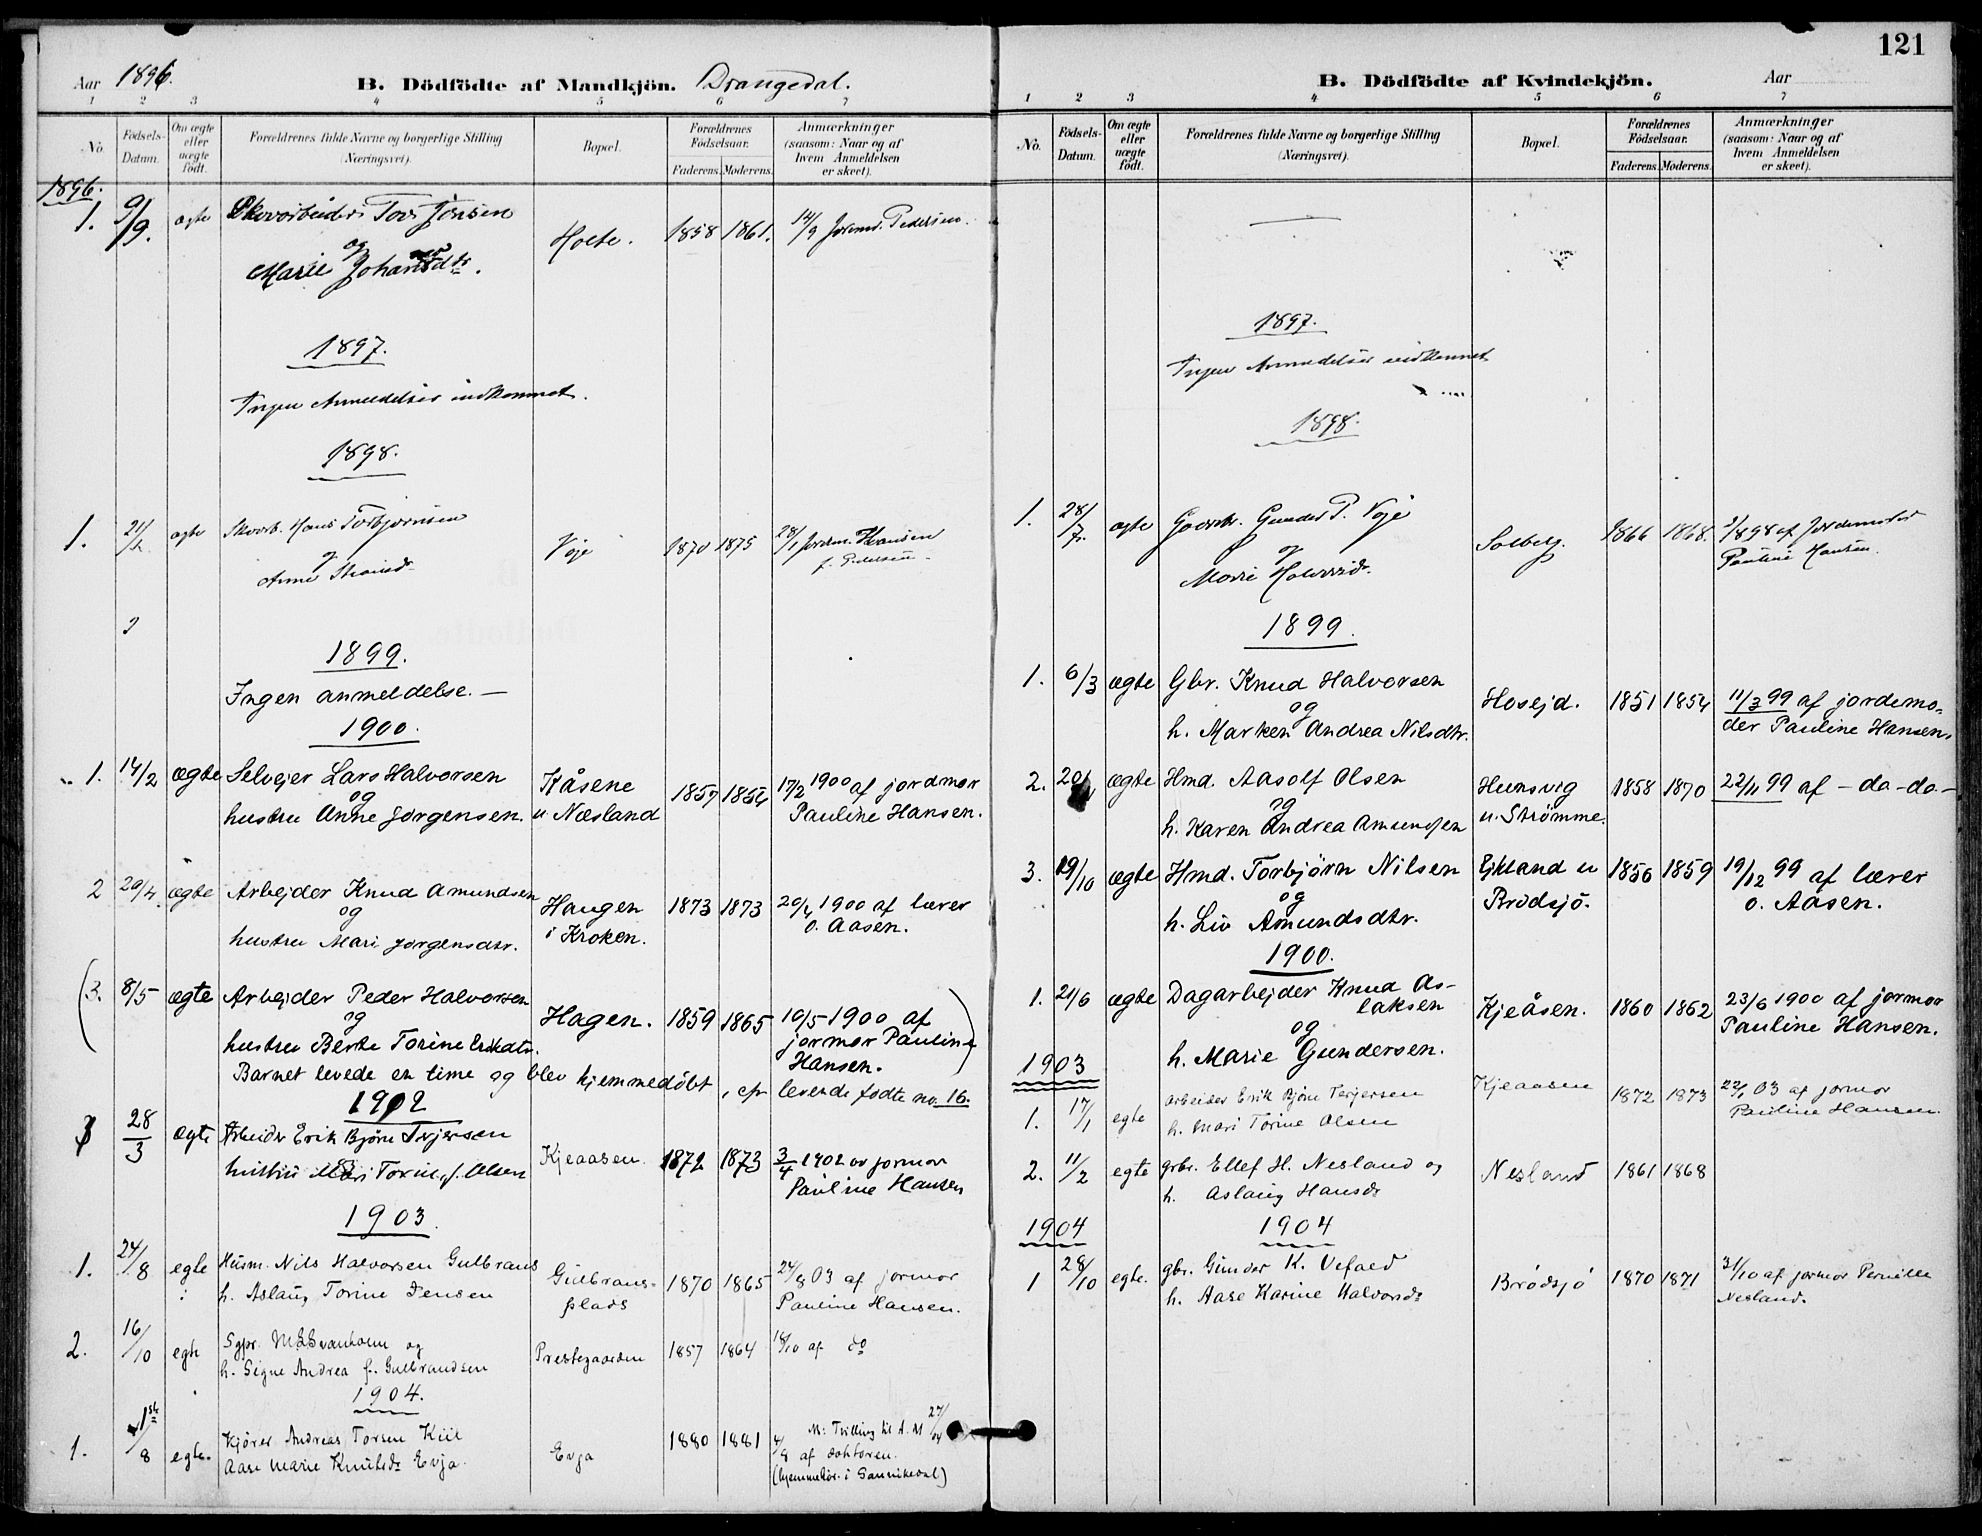 121
Aar 1896.
B. Dödfödte af Mandkjön. Drangedal.
1 2 3 4 5 6 7
No.
Födsels-Datum.
Om ægte eller uægte födt.
Forældrenes fulde Navne og borgerlige Stilling (Næringsvei).
Bopæl.
Forældrenes Födselsaar.
Faderens. Moderens.
Anmærkninger (saasom: Naar og af hvem Anmeldelsen er skeet).
1896.
1. 9/9. ægte Skovarbeider Tov Jensen Holte. 1858 1861. 14/9 Jordmd. Pedersen.
og
Marie Johansdtr.
1897.
Ingen Anmeldelser indkommet.
1898.
1. 21/ ægte Skovarb. Hans Torbjørnsen Voje 1870 1875 28/1 Jordm. Hansen
og f. Pedersen
Anne
1899.
Ingen anmeldelse. —
1900.
1. 14/2 ægte Selvejer Lars Halvorsen Kåsene 1857 1854 17/2 1900 af jordmor
og
hustru Anne Jørgensen. u. Næsland Pauline Hansen.
2 20/4. ægte Arbejder Knud Amundsen Haugen 1873 1873 20/4 1900 af lærer
og i Kroken. O. Aasen.
hustru Mari Jørgensdtr.
(3. 8/5 ægte Arbejder Peder Halvorsen Hagen. 1859 1865 10/5 1900 af
og jormor Pauline
hustru Berte Torine Eriksdtr. Hansen.)
Barnet levede en time og blev hjemmedøbt, cfr levende fødte no. 16.
1902
3 28/3 ægte Arbeider Erik Bjørn Terjersen Kjeaasen 1872 1873 3/4 1902 av jormor
hustru Mari Torine, f. Olsen Pauline Hansen
1903.
1. 24/8 egte Husm. Nils Halvorsen Gulbrans Gulbrans- 1870 1865 24/8 03 af jormor
h. Aslaug Torine Jensen plads Pauline Hansen.
2. 16/10 egte Sgpr. M Svanholm og Prestegaarden 1857 1864 18/10 af do
h. Signe Andrea f. Gulbrandsen
1904.
1. 1ste/8 egte. Kjører Andreas Torsen Kiil Evja 1880 1881 M: Tvilling til A. M 27/04
Aase Marie Knutsdr Evja. 4/8 af doktoren.
(hjemmehør. i Sannikedal)
B. Dödfödte af Kvindekjön. Aar
1 2 3 4 5 6 7
No.
Födsels-Datum.
Om ægte eller uægte födt.
Forældrenes fulde Navne og borgerlige Stilling (Næringsvei).
Bopæl.
Forældrenes Födselsaar.
Faderens. Moderens.
Anmærkninger (saasom: Naar og af hvem Anmeldelsen er skeet).
1897.
Ingen Anmeldelser indkommet
1898.
1. 28/7. ægte Gunder P. Voje Solberg. 1866 1868. 1/8 98 af Jordemoder
og Pauline Hansen.
Marie Halvorsdr.
1899.
1. 6/3 ægte Gbr. Knud Halvorsen Hosejd. 1851 1854 11/3 99 af jordemo-
og
h. Marken Andrea Nilsdtr. der Pauline Hansen,
2. 20/ ægte Hmd. Aasolf Olsen Hunsvig 1858 1870 22/11 99 af — do-do. —
og u. Strømme.
h. Karen Andrea Amundsen
3. 19/10 ægte Hmd. Torbjørn Nilsen Ejkland u 1856 1859 19/12 99 af lærer
og Brødsjø. O. Aasen.
h. Liv Amundsdtr.
1900.
1. 21/6 ægte Dagarbejder Knud As-
laksen Kjeåsen. 1860 1862 23/6 1900 af jormor
og Pauline Hansen.
h. Marie Gundersen.
1903
1. 17/1 egte arbeider Erik Bjørn Terjersen Kjeaasen 1872 1873 22/1 03 af jormor
h. Mari Torine Olsen Pauline Hansen.
2. 11/2 egte grbr. Ellef H. Nesland og Nesland 1861 1868
h. Aslaug Hansdr
1904 1904
1 28/10 egte. gbr. Gunder K. Vefald Brødsjø 1870 1871 31/10 af jormor Pernille
h. Aase Karine Halvorsdr Nesland.